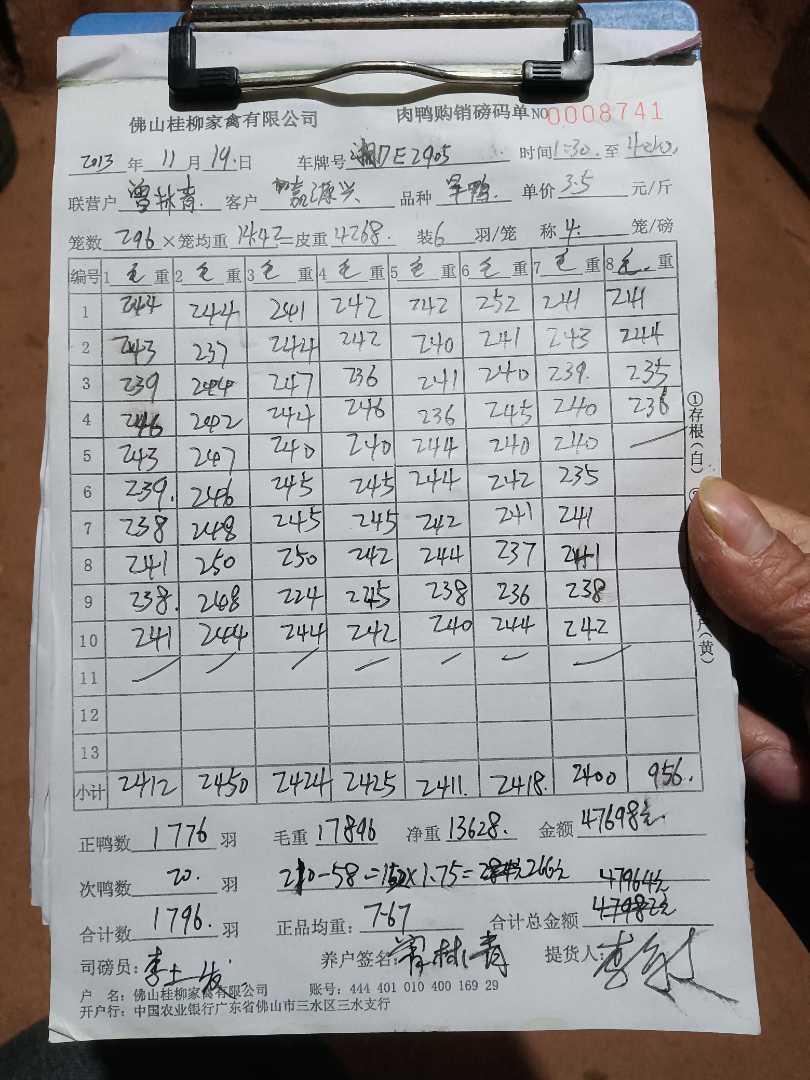 佛山桂柳家禽有限公司 肉鸭购销磅码单 NO 0008741
2013 年 11 月 19. 日 车牌号 湘DE2905 时间 1:30. 至
联营户 曾林青. 客户 嘉源兴 品种 羊鸭. 单价 3.5 元/斤
笼数 296 ×笼均重 14.42 =皮重 4268. 装 6 羽/笼 称 4. 笼/磅
编号 1 毛 重 2 毛 重 3 毛 重 4 毛 重 5 毛 重 6 毛 重 7 毛 重 8 毛 重
1 244 244 241 242 242 252 241 241
2 243 237 244 242 240 241 243 244
3 239 244 247 236 241 240 239. 235
4 246 242 244 246 236 245 240 236
5 243 247 240 240 244 240 240
6 239. 246 245 245 244 242 235
7 238 248 245 245 242 241 241
8 241 250 250 242 244 237 241
9 238. 248 224 245 238 236 238
10 241 244 244 242 240 244 242
11
12
13
小计 2412 2450 2424 2425 2411. 2418. 2400 956.
①存根(白)
户(黄)
正鸭数 1776 羽 毛重 17896 净重 13628. 金额 47698元.
次鸭数 20. 羽 210-58=152×1.75= 266元 47964元
合计数 1796. 羽 正品均重: 7-67 合计总金额 47982元
司磅员: 李土发 养户签名: 曾林青 提货人:
户 名: 佛山桂柳家禽有限公司 账号: 444 401 010 400 169 29
开户行: 中国农业银行广东省佛山市三水区三水支行